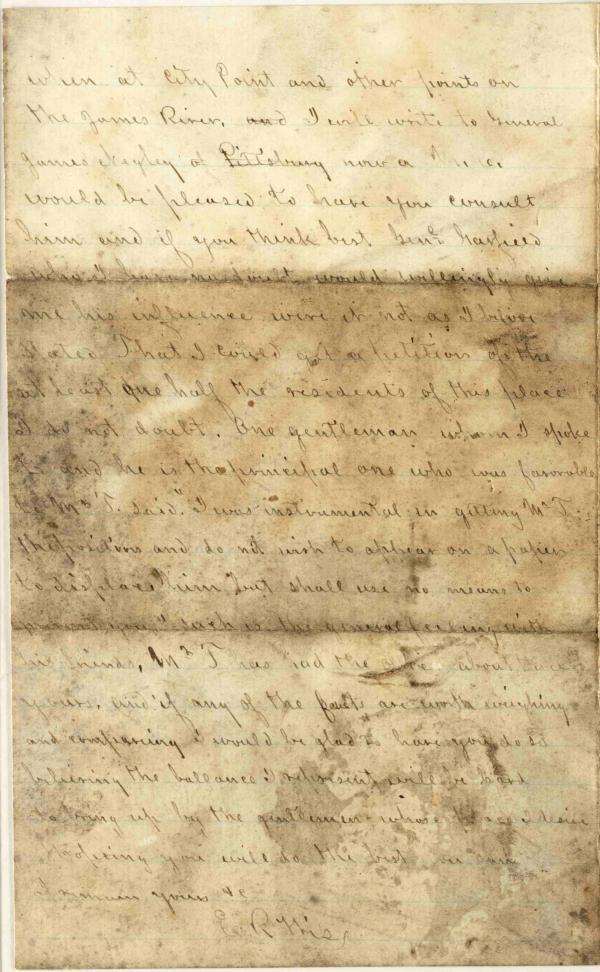 when at City Point and other points on
the James River, and I will write to General
James Negley of Pittsburg now a M. C.
would be pleased to have you consult
him and if you think best Genl Garfield
who I have no doubt would willingly give
me his influence were it not as I before
stated That I could get a petition of the
at least one half the residents of this place
I do not doubt. One gentleman whom I spoke
to and he is the principal one who was favorable
to Mr T. said "I was instrumental in getting Mr T.
the position and do not wish to appear on a paper
to displace him but shall use no means to
prevent you," such is the general feeling with
his friends, Mr T has had the office about
years, and if any of the facts are worth weighing
and comparing I would be glad to have you do so
believing the ballance I represent will be hard
to bring up by the gentleman whose place I desire
Hoping you will do the best you can
I remain yours &c
E. R.